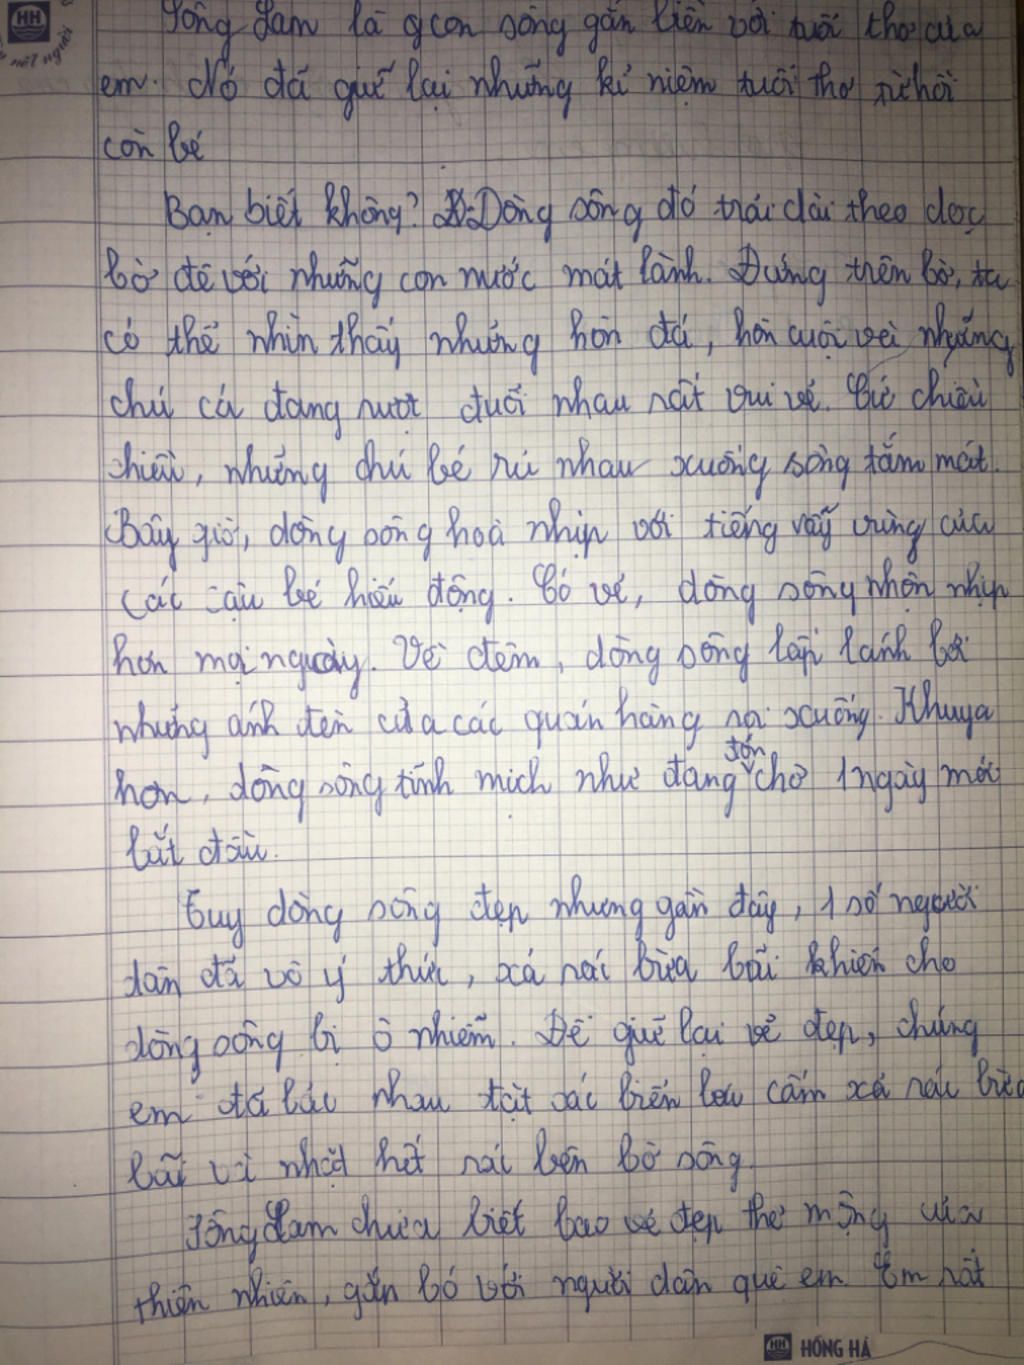 HH
một người
Sông Lam là con sông gắn liền với tuổi thơ của
em. Nó đã giữ lại những kỉ niệm tuổi thơ từ hồi
còn bé
Bạn biết không? Dòng sông đó trải dài theo dọc
bờ đê với những con nước mát lành. Đứng trên bờ, ta
có thể nhìn thấy những hòn đá, hòn cuội và những
chú cá đang rượt đuổi nhau rất vui vẻ. Cứ chiều
chiều, những chú bé rủ nhau xuống sông tắm mát.
Bây giờ, dòng sông hoà nhịp với tiếng vẫy vùng của
các cậu bé hiếu động. Có vẻ, dòng sông nhộn nhịp
hơn mọi ngày. Về đêm, dòng sông lấp lánh bởi
những ánh đèn của các quán hàng rọi xuống. Khuya
hơn, dòng sông tĩnh mịch như đang đón chờ 1 ngày mới
bắt đầu.
Tuy dòng sông đẹp nhưng gần đây, 1 số người
dân đã vô ý thức, xả rác bừa bãi khiến cho
dòng sông bị ô nhiễm. Để giữ lại vẻ đẹp, chúng
em đã bảo nhau đặt các biển báo cấm xả rác bừa
bãi và nhặt hết rác bên bờ sông
Sông Lam chứa biết bao vẻ đẹp thơ mộng của
thiên nhiên, gắn bó với người dân quê em. Em rất
HH HỒNG HÀ